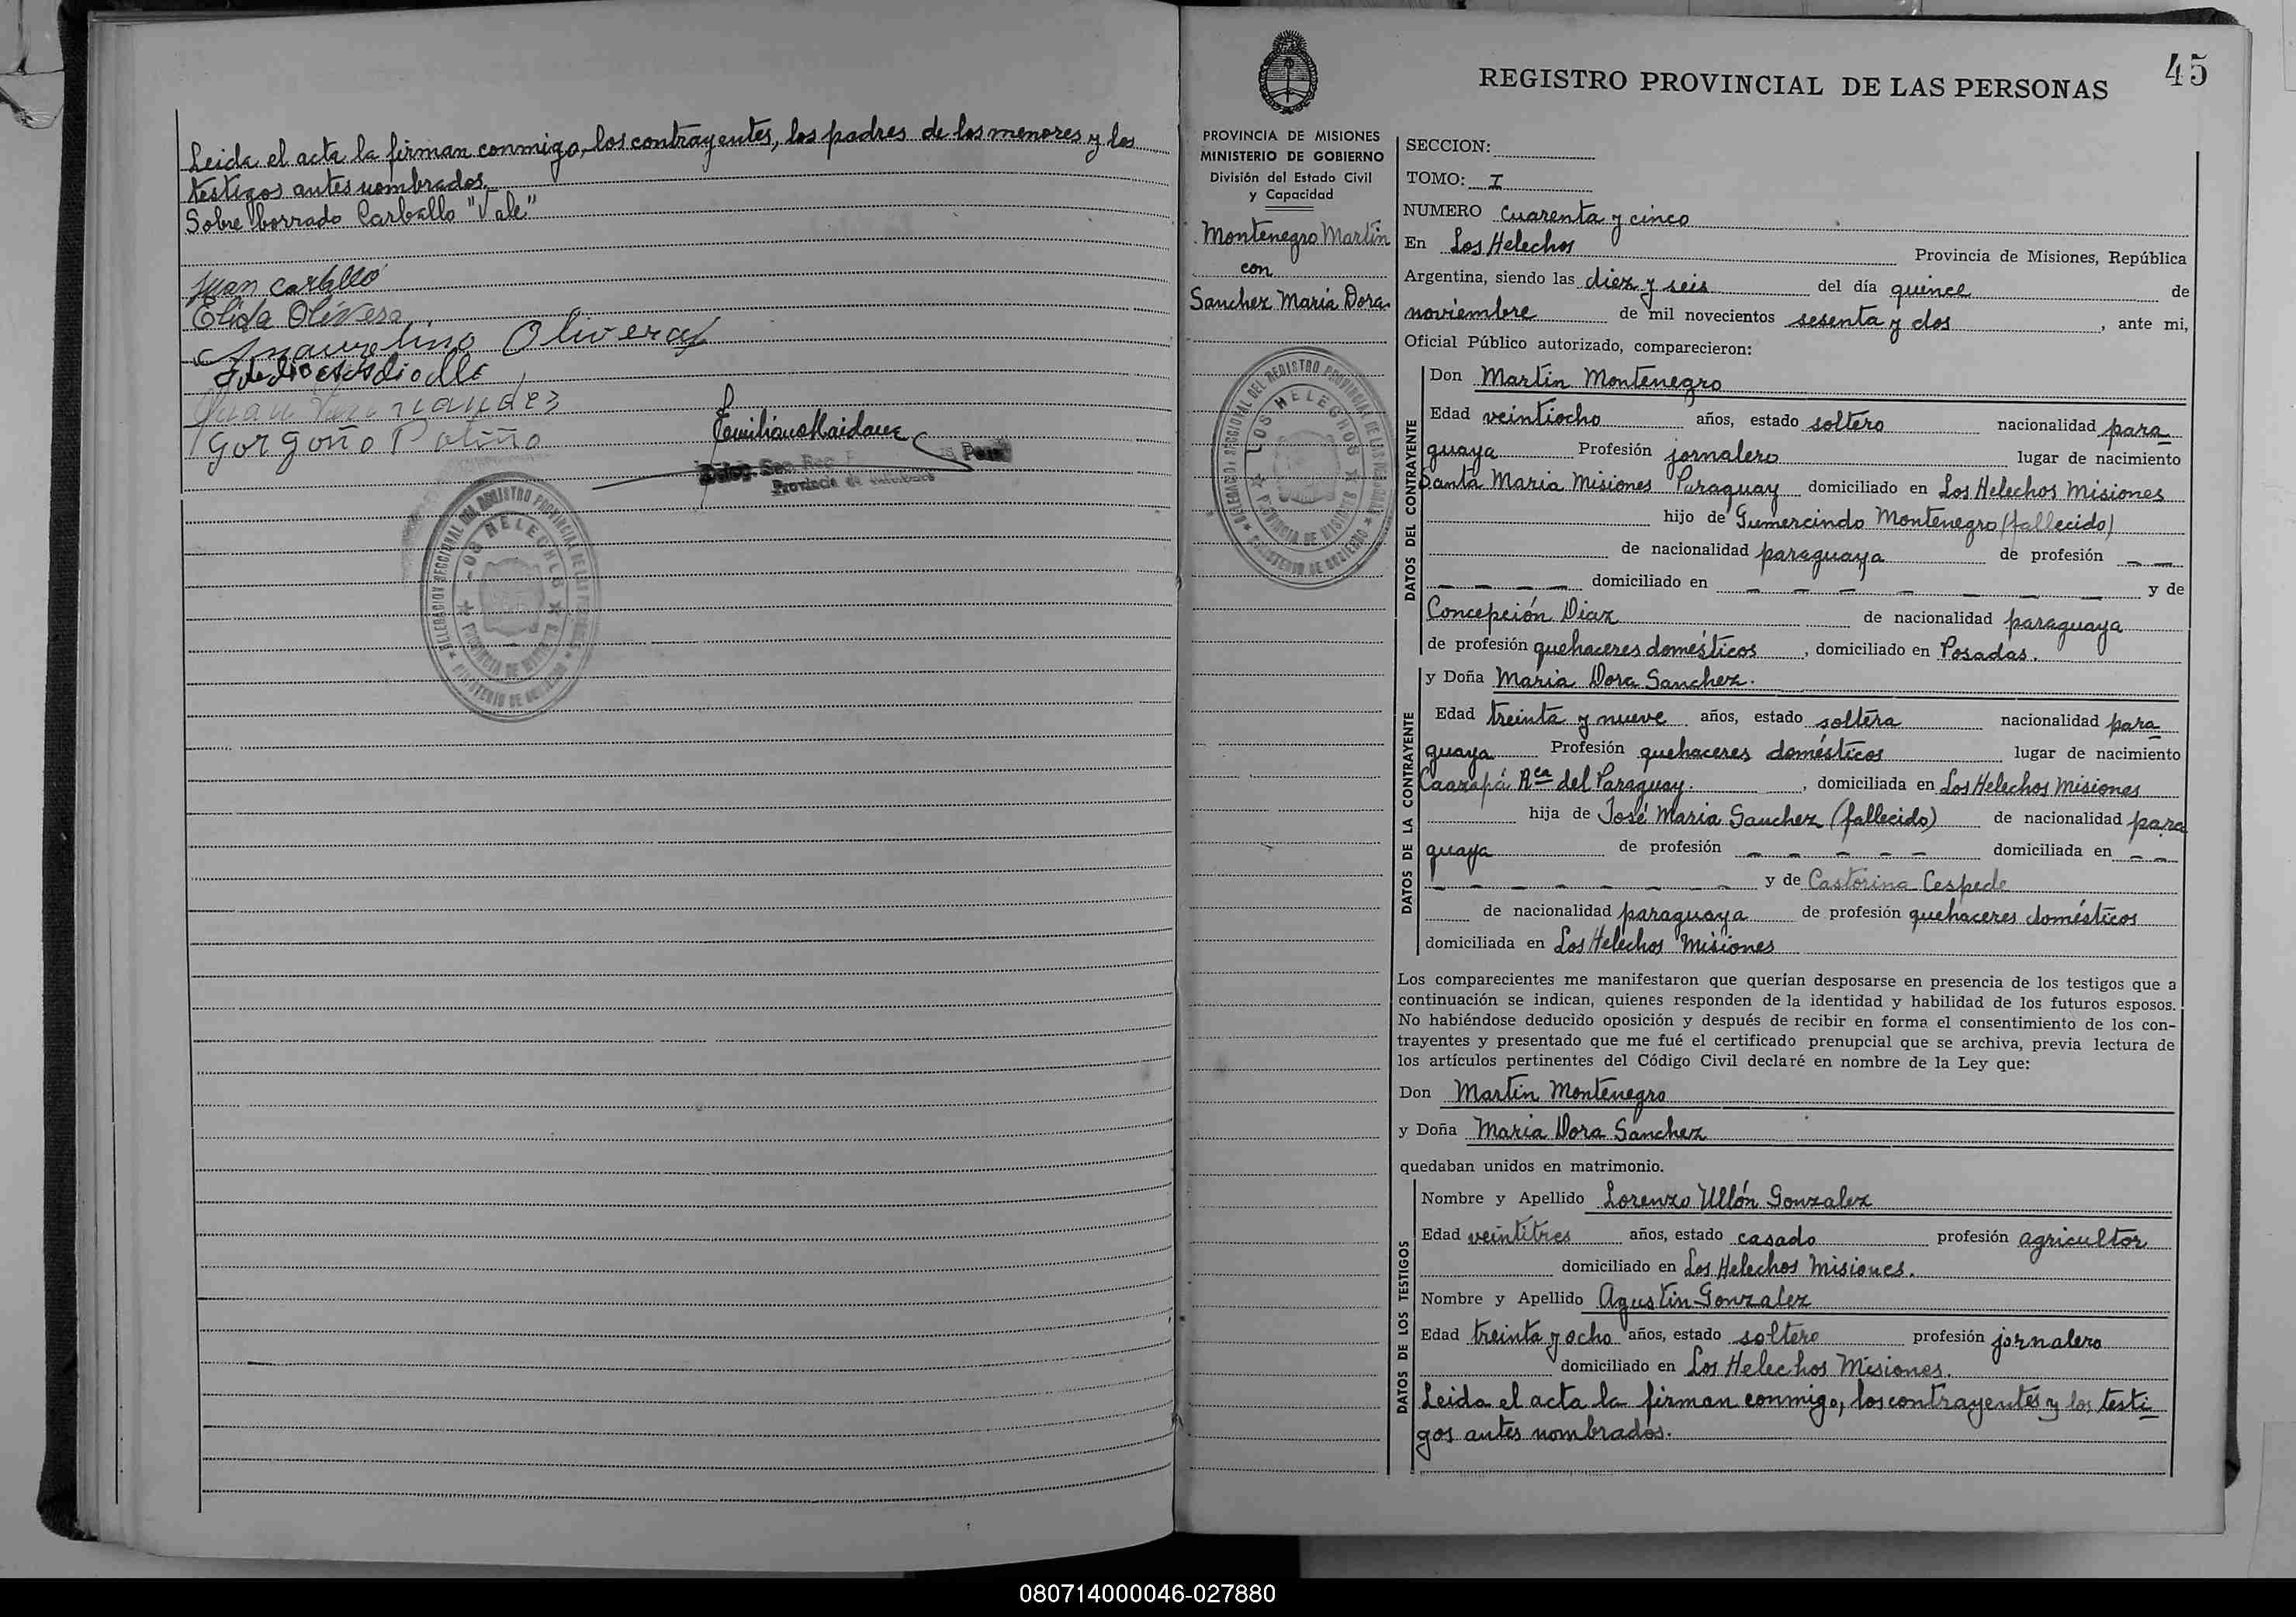 Leida el acta la firman conmigo, los contrayentes, los padres de los menores y los
testigos antes nombrados.
Sobre borrado Carballo "Vale"
Juan Carballo
Elida Olivera
Olivera
Juan
Gorgoño Patiño
Emiliano Maidana
Provincia de Misiones
DELEGACION SECCIONAL DEL REGISTRO PROVINCIAL DE LAS PERSONAS
LOS HELECHOS
PROVINCIA DE MISIONES
MINISTERIO DE GOBIERNO
45
REGISTRO PROVINCIAL DE LAS PERSONAS
PROVINCIA DE MISIONES
MINISTERIO DE GOBIERNO
División del Estado Civil
y Capacidad
Montenegro Martin
con
Sanchez Maria Dora
DELEGACION SECCIONAL DEL REGISTRO PROVINCIAL DE LAS PERSONAS
LOS HELECHOS
PROVINCIA DE MISIONES
MINISTERIO DE GOBIERNO
SECCION:
TOMO: I
NUMERO Cuarenta y cinco
En Los Helechos Provincia de Misiones, República
Argentina, siendo las diez y seis del día quince de
noviembre de mil novecientos sesenta y dos, ante mi,
Oficial Público autorizado, comparecieron:
DATOS DEL CONTRAYENTE
Don Martin Montenegro
Edad veintiocho años, estado soltero nacionalidad para
guaya Profesión jornalero lugar de nacimiento
Santa Maria Misiones Paraguay domiciliado en Los Helechos Misiones
hijo de Gumercindo Montenegro (fallecido)
de nacionalidad paraguaya de profesión — —
— — — — domiciliado en — — — — — — — y de
Concepción Diaz de nacionalidad paraguaya
de profesión quehaceres domésticos, domiciliado en Posadas.
DATOS DE LA CONTRAYENTE
y Doña Maria Dora Sanchez.
Edad treinta y nueve años, estado soltera nacionalidad para
guaya Profesión quehaceres domésticos lugar de nacimiento
Caazapá Rca del Paraguay., domiciliada en Los Helechos Misiones
hija de José Maria Sanchez (fallecido) de nacionalidad para
guaya de profesión — — — — — domiciliada en — —
— — — — — — — y de Castorina Cespede
de nacionalidad paraguaya de profesión quehaceres domésticos
domiciliada en Los Helechos Misiones
Los comparecientes me manifestaron que querían desposarse en presencia de los testigos que a
continuación se indican, quienes responden de la identidad y habilidad de los futuros esposos.
No habiéndose deducido oposición y después de recibir en forma el consentimiento de los con-
trayentes y presentado que me fué el certificado prenupcial que se archiva, previa lectura de
los artículos pertinentes del Código Civil declaré en nombre de la Ley que:
Don Martin Montenegro
y Doña Maria Dora Sanchez
quedaban unidos en matrimonio.
DATOS DE LOS TESTIGOS
Nombre y Apellido Lorenzo Ullón Gonzalez
Edad veintitres años, estado casado profesión agricultor
domiciliado en Los Helechos Misiones.
Nombre y Apellido Agustin Gonzalez
Edad treinta y ocho años, estado soltero profesión jornalero
domiciliado en Los Helechos Misiones.
Leida el acta la firman conmigo, los contrayentes y los testi
gos antes nombrados.
080714000046-027880